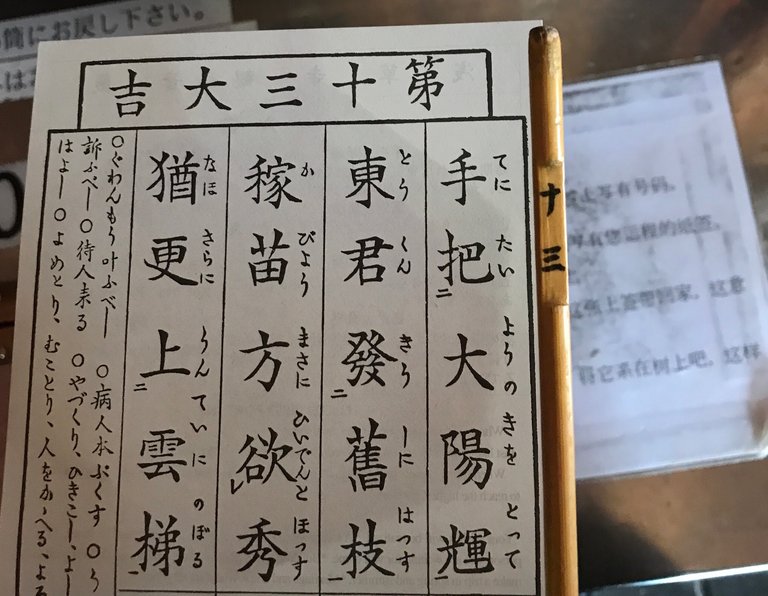 筒にお戻し下さい。
第十三大吉
手把二大陽輝一
てに たい ようのきを とって
東君發二舊枝一
とう くん きうしに はつす
稼苗方欲レ秀
か びよう まさに ひいでんと ほつす
猶更上二雲梯一
なほ さらに うんていに のぼる
○ぐわんもう叶ふべし ○病人本ぶくす ○う
訴ふべし ○待人来る ○やづくり、ひきこし、よし
はよし ○よめとり、むことり、人をかゝへる、よろ
十三
写有号码。
有您运程的纸签。
上签带回家。这意
将它系在树上吧。这样